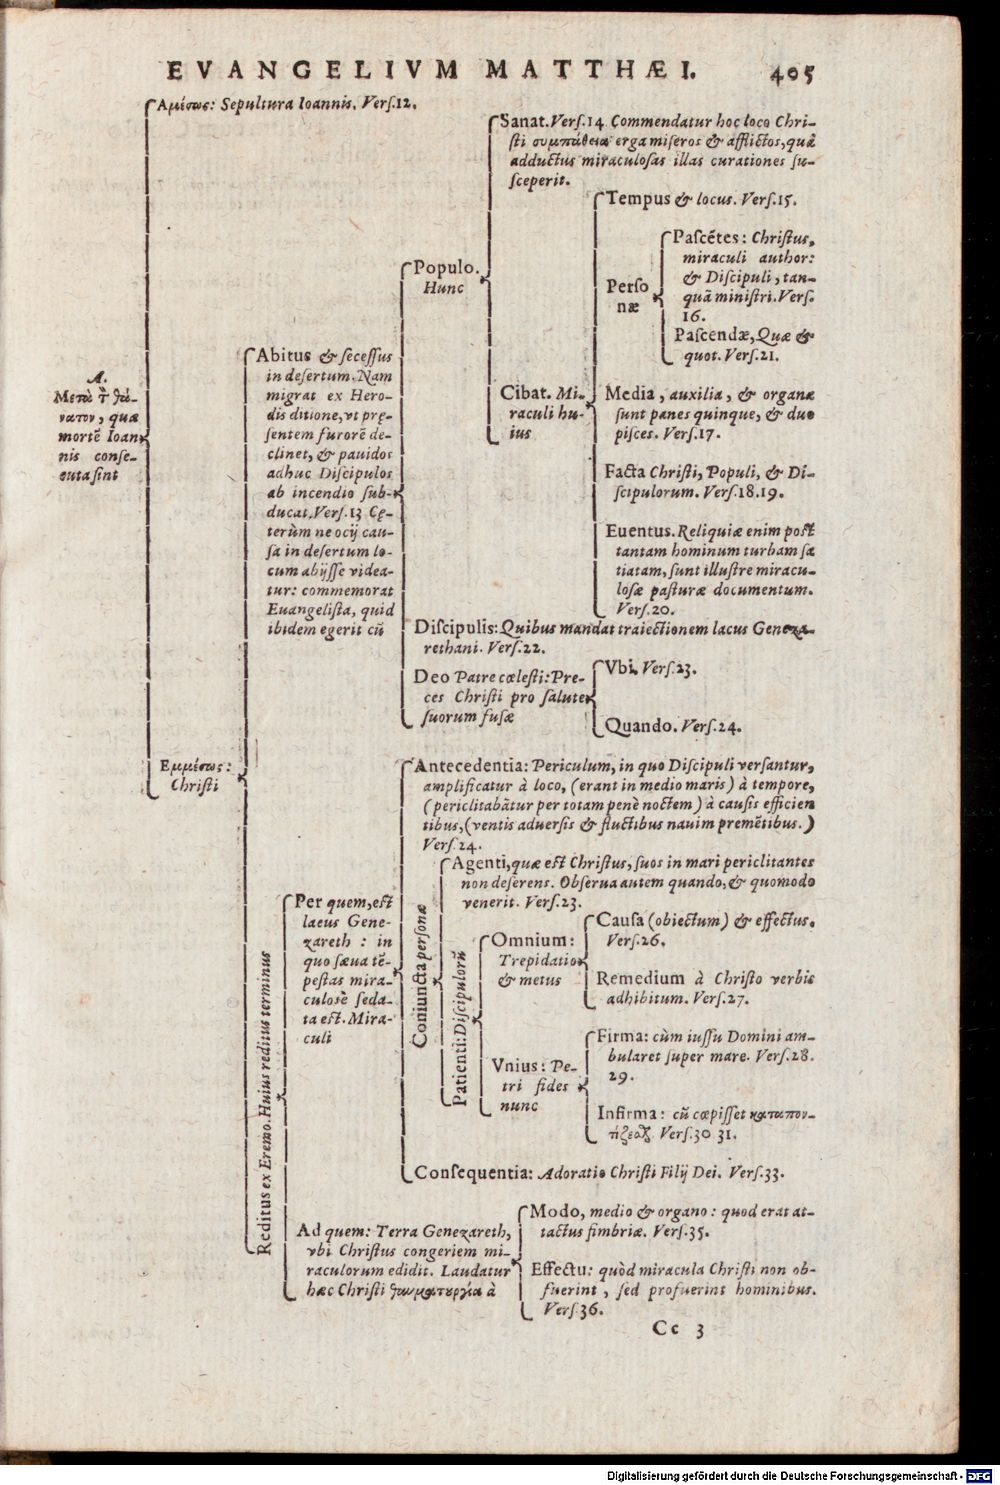 EVANGELIVM MATTHÆI. 405
Ἀμέσως: Sepultura Ioannis. Verſ.12.
A.
Μετὰ τ̃ θά-
νατον, quæ
mortẽ Ioan-
nis conſe-
cuta ſint
Ἐμμέσως:
Chriſti
Abitus & ſeceſſus
in deſertum. Nam
migrat ex Hero-
dis ditione, vt prę-
ſentem furorẽ de-
clinet, & pauidos
adhuc Diſcipulos
ab incendio ſub-
ducat. Verſ.13 Cę-
terùm ne ocij cau-
ſa in deſertum lo-
cum abijſſe videa-
tur: commemorat
Euangeliſta, quid
ibidem egerit cũ
Populo.
Hunc
Sanat. Verſ.14 Commendatur hoc loco Chri-
ſti συμπάθεια erga miſeros & afflictos, quâ
adductus miraculoſas illas curationes ſu-
ſceperit.
Cibat. Mi-
raculi hu-
ius
Tempus & locus. Verſ.15.
Perſo
næ
Paſcẽtes: Chriſtus,
miraculi author:
& Diſcipuli, tan-
quã miniſtri. Verſ.
16.
Paſcendæ, Quæ &
quot. Verſ.21.
Media, auxilia, & organa
ſunt panes quinque, & duo
piſces. Verſ.17.
Facta Chriſti, Populi, & Di-
ſcipulorum. Verſ.18.19.
Euentus. Reliquiæ enim poſt
tantam hominum turbam ſa
tiatam, ſunt illuſtre miracu-
loſæ paſturæ documentum.
Verſ.20.
Diſcipulis: Quibus mandat traiectionem lacus Geneza-
rethani. Verſ.22.
Deo Patre cœleſti: Pre-
ces Chriſti pro ſalute
ſuorum fuſæ
Vbi. Verſ.23.
Quando. Verſ.24.
Reditus ex Eremo. Huius reditus terminus
Per quem, eſt
lacus Gene-
zareth: in
quo ſæua tẽ-
peſtas mira-
culoſè ſeda-
ta eſt. Mira-
culi
Antecedentia: Periculum, in quo Diſcipuli verſantur,
amplificatur à loco, (erant in medio maris) à tempore,
(periclitabãtur per totam penè noctem) à cauſis efficien
tibus, (ventis aduerſis & fluctibus nauim premẽtibus.)
Verſ.24.
Coniuncta perſonæ
Agenti, quæ eſt Chriſtus, ſuos in mari periclitantes
non deſerens. Obſerua autem quando, & quomodo
venerit. Verſ.23.
Patienti: Diſcipulorũ
Omnium:
Trepidatio
& metus
Cauſa (obiectum) & effectus.
Verſ.26.
Remedium à Chriſto verbis
adhibitum. Verſ.27.
Vnius: Pe-
tri fides
nunc
Firma: cùm iuſſu Domini am-
bularet ſuper mare. Verſ.28.
29.
Infirma: cũ cœpiſſet καταπον-
τίζεσθαι Verſ.30 31.
Conſequentia: Adoratio Chriſti Filij Dei. Verſ.33.
Ad quem: Terra Genezareth,
vbi Chriſtus congeriem mi-
raculorum edidit. Laudatur
hæc Chriſti θαυματουργία à
Modo, medio & organo: quod erat at-
tactus fimbriæ. Verſ.35.
Effectu: quòd miracula Chriſti non ob-
fuerint, ſed profuerint hominibus.
Verſ.36.
Cc 3
Digitalisierung gefördert durch die Deutsche Forschungsgemeinschaft - DFG